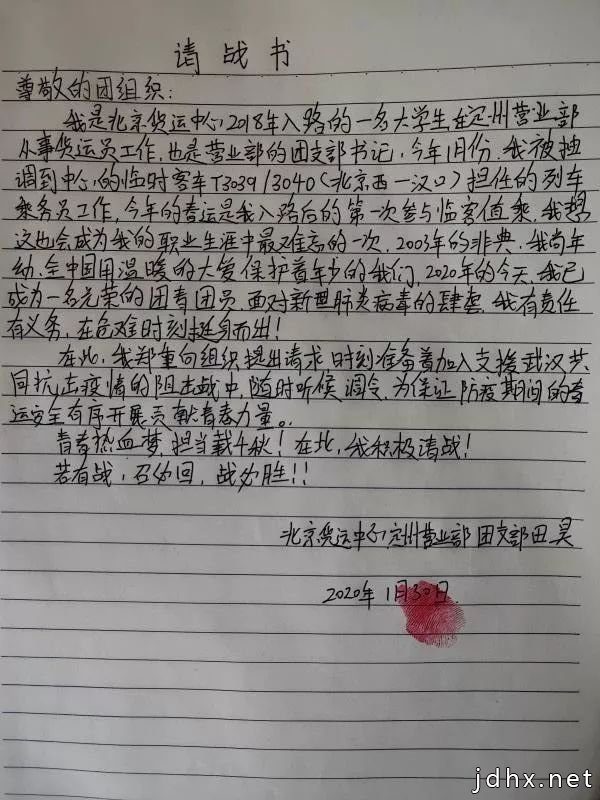 请战书
尊敬的团组织：
我是北京货运中心2018年入路的一名大学生在定州营业部
从事货运员工作，也是营业部的团支部书记，今年1月份，我被抽
调到中心的临时客车T3039/3040（北京西一汉口）担任的列车
乘务员工作，今年的春运是我入路后的第一次参与临客值乘，我想
这也会成为我的职业生涯中最难忘的一次，2003年的非典，我尚年
幼，全中国用温暖的大爱保护着年少的我们，2020年的今天，我已
成为一名光荣的团青团员，面对新型肺炎病毒的肆虐，我有责任
有义务，在危难时刻挺身而出！
在此，我郑重向组织提出请求时刻准备着加入支援武汉共
同抗击疫情的阻击战中，随时听候调令，为保证防疫期间的春
运安全有序开展贡献青春力量。
青春热血梦，担当载千秋！在此，我积极请战！
若有战，召必回，战必胜！！
北京货运中心定州营业部团支部田昊
2020年1月30日
jdhx.net